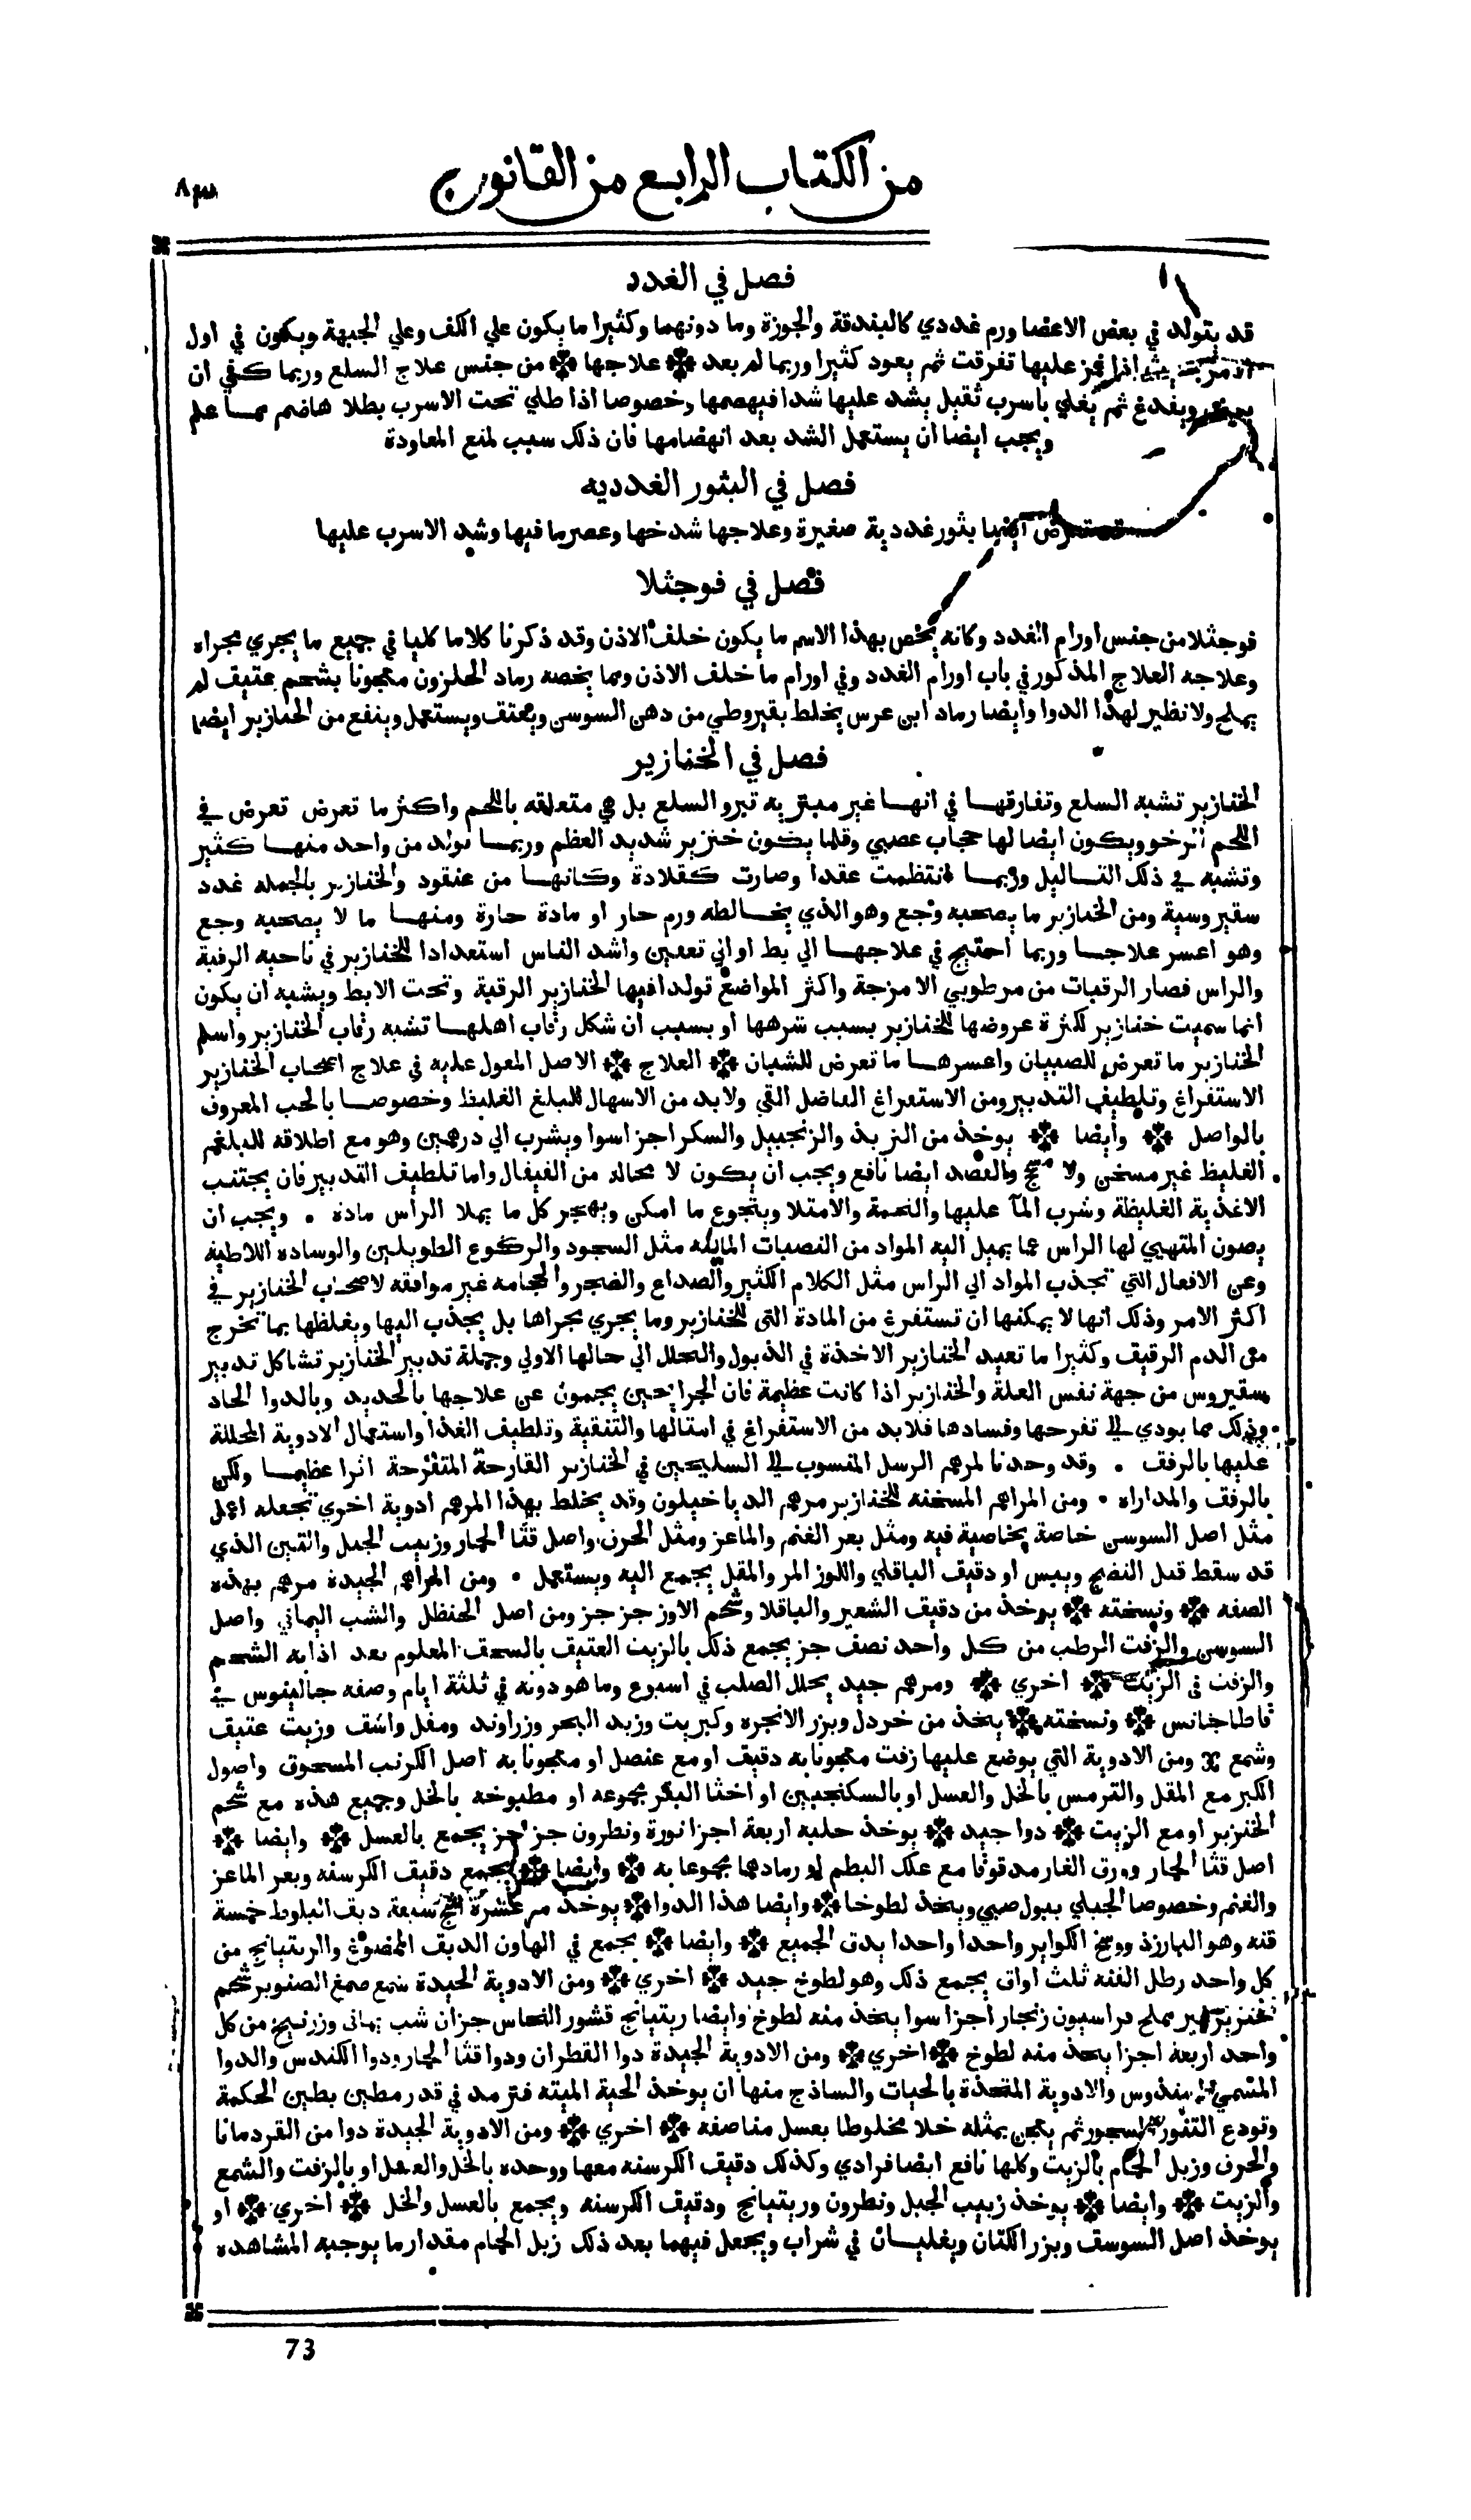 من الكتاب الرابع من القانون
فصل في الغدد
قد يتولد في بعض الاعضا ورم غددي كالبندقة والجوزة وما دونهما وكثيرا ما يكون علي الكف وعلي الجبهة ويكون في اول
اذا غمز عليها تفرقت ثم يعود كثيرا وربما لم يعد ✤ علاجها ✤ من جنس علاج السلع وربما كفي ان
ويفدغ ثم يغلي باسرب ثقيل يشد عليها شدا فيهصمها وخصوصا اذا طلي تحت الاسرب بطلا هاضم مما علم
ويجب ايضا ان يستعمل الشد بعد انهضامها فان ذلك سبب لمنع المعاودة
فصل في البثور الغدديه
ايضا بثور غددية صغيرة وعلاجها شدخها وعصر ما فيها وشد الاسرب عليها
فصل في فوجثلا
فوجثلا من جنس اورام الغدد وكانه يخص بهذا الاسم ما يكون خلف الاذن وقد ذكرنا كلاما كليا في جميع ما يجري مجراه
وعلاجه العلاج المذكور في باب اورام الغدد وفي اورام ما خلف الاذن ومما يخصه رماد الحلزون معجونا بشحم عتيق لم
يملح ولا نظير لهذا الدوا وايضا رماد ابن عرس يخلط بقيروطي من دهن السوسن ويعتق ويستعمل وينفع من الخنازير ايضا
فصل في الخنازير
الخنازير تشبه السلع وتفارقها في انها غير مبتريه تبرو السلع بل هي متعلقه باللحم واكثر ما تعرض تعرض في
اللحم الرخو ويكون ايضا لها حجاب عصبي وقلما يكون خنزير شديد العظم وربما تولد من واحد منها كثير
وتشبه في ذلك التاليل وربما انتظمت عقدا وصارت كقلادة وكانها من عنقود والخنازير بالجمله غدد
سقيروسية ومن الخنازير ما يصحبه وجع وهو الذي يخالطه ورم حار او مادة حارة ومنها ما لا يصحبه وجع
وهو اعسر علاجا وربما احتيج في علاجها الي بط او الي تعفين واشد الناس استعدادا للخنازير في ناحيه الرقبة
والراس قصار الرقبات من مرطوبي الامزجة واكثر المواضع تولدا فيها الخنازير الرقبة وتحت الابط ويشبه ان يكون
انما سميت خنازير لكثرة عروضها للخنازير بسبب شرهها او بسبب ان شكل رقاب اهلها تشبه رقاب الخنازير واسلم
الخنازير ما تعرض للصبيان واعسرها ما تعرض للشبان ✤ العلاج ✤ الاصل المعول عليه في علاج اصحاب الخنازير
الاستفراغ وتلطيف التدبير ومن الاستفراغ الفاضل القي ولا بد من الاسهال للبلغم الغليظ وخصوصا بالحب المعروف
بالواصل ✤ وايضا ✤ يوخذ من التربذ والزنجبيل والسكر اجزا سوا ويشرب الي درهمين وهو مع اطلاقه للبلغم
الغليظ غير مسخن ولا والفصد ايضا نافع ويجب ان يكون لا محاله من القيفال واما تلطيف التدبير فان يجتنب
الاغذية الغليظة وشرب المآ عليها والتخمة والامتلا ويتجوع ما امكن ويهجر كل ما يملا الراس مادة . ويجب ان
يصون المتهيي لها الراس عما يميل اليه المواد من النصبات المايله مثل السجود والركوع الطويلين والوساده اللاطية
وعن الافعال التي تجذب المواد الي الراس مثل الكلام الكثير والصداع والضجر والحجامه غير موافقه لاصحاب الخنازير في
اكثر الامر وذلك انها لا يمكنها ان تستفرغ من المادة التي للخنازير وما يجري مجراها بل يجذب اليها ويغلظها بما تخرج
من الدم الرقيق وكثيرا ما تعيد الخنازير الاخذة في الذبول والتحلل الي حالها الاولي وجملة تدبير الخنازير تشاكل تدبير
سقيروس من جهة نفس العلة والخنازير اذا كانت عظيمة فان الجراحين يجمون عن علاجها بالحديد وبالدوا الحاد
وذلك مما يودي الي تقرحها وفسادها فلا بد من الاستفراغ في امثالها والتنقية وتلطيف الغذا واستعمال الادوية المحللة
عليها بالرفق . وقد وجدنا لمرهم الرسل المنسوب الي السليحين في الخنازير القارحة المتقرحة اثرا عظيما ولكن
بالرفق والمداراه . ومن المراهم المسخنه للخنازير مرهم الدياخيلون وقد يخلط بهذا المرهم ادوية اخري تجعله اعمل
مثل اصل السوسن خاصة بخاصية فيه ومثل بعر الغنم والماعز ومثل الحرف واصل قثا الحمار وزبيب الجبل والتين الذي
قد سقط قبل النضج ويبس او دقيق الباقلي واللوز المر والمقل يجمع اليه ويستعمل . ومن المراهم الجيدة مرهم بهذه
الصفه ✤ ونسخته ✤ يوخذ من دقيق الشعير والباقلا وشحم الاوز جز جز ومن اصل الحنظل والشب اليماني واصل
السوسن والزفت الرطب من كل واحد نصف جز يجمع ذلك بالزيت العتيق بالسحق المعلوم بعد اذابه الشحم
والزفت في الزيت ✤ اخري ✤ ومرهم جيد يحلل الصلب في اسبوع وما هو دونه في ثلثة ايام وصفه جالينوس في
قاطاجانس ✤ ونسخته ✤ يتخذ من خردل وبزر الانجره وكبريت وزبد البحر وزراوند ومقل واشق وزيت عتيق
وشمع ومن الادوية التي يوضع عليها زفت معجونا به دقيق او مع عنصل او معجونا به اصل الكرنب المسحوق واصول
الكبر مع المقل والترمس بالخل والعسل او بالسكنجبين او اخثا البقر مجموعه او مطبوخه بالخل وجميع هذه مع شحم
الخنزير او مع الزيت ✤ دوا جيد ✤ يوخذ حلبه اربعة اجزا نورة ونطرون جز جز يجمع بالعسل ✤ وايضا ✤
اصل قثا الحمار وورق الغار مدقوقا مع علك البطم او رمادهما مجموعا به ✤ وايضا ✤ يجمع دقيق الكرسنه وبعر الماعز
والغنم وخصوصا الجبلي ببول صبي ويتخذ لطوخا ✤ وايضا هذا الدوا ✤ يوخذ مر عشرة سبعة دبق البلوط خمسة
قنه وهو البارزذ ووسخ الكواير واحدا واحدا يدق الجميع ✤ وايضا ✤ يجمع في الهاون الدبق الممضوغ والريتيانج من
كل واحد رطل القنه ثلث اواق يجمع ذلك وهو لطوخ جيد ✤ اخري ✤ ومن الادوية الجيدة شمع صمغ الصنوبر شحم
خنزير غير مملح فراسيون زنجار اجزا سوا يتخذ منه لطوخ وايضا ريتيانج قشور النحاس جزان شب يماني وزرنيخ من كل
واحد اربعة اجزا يتخذ منه لطوخ ✤ اخري ✤ ومن الادوية الجيدة دوا القطران ودوا قثا الحمار ودوا الكندس والدوا
والادوية المتخذة بالحيات والساذج منها ان يوخذ الحية الميته فترمد في قدر مطين بطين الحكمة
وتودع التنور المسجور ثم يعجن بمثله خلا مخلوطا بعسل مناصفه ✤ اخري ✤ ومن الادوية الجيدة دوا من القردمانا
والحرف وزبل الحمام بالزيت وكلها نافع ايضا فرادي وكذلك دقيق الكرسنه معها ووحده بالخل والعسل او بالزفت والشمع
والزيت ✤ وايضا ✤ يوخذ زبيب الجبل ونطرون وريتيانج ودقيق الكرسنه ويجمع بالعسل والخل ✤ اخري ✤ او
يوخذ اصل السوسن وبزر الكتان ويغليان في شراب ويجعل فيهما بعد ذلك زبل الحمام مقدار ما يوجبه المشاهده
73